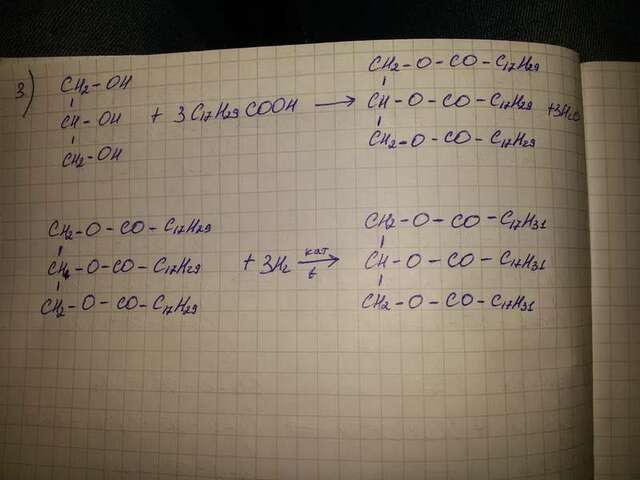 3)
CH₂-OH CH₂-O-CO-C₁₇H₂₉
CH-OH + 3C₁₇H₂₉COOH → CH-O-CO-C₁₇H₂₉ +3H₂O
CH₂-OH CH₂-O-CO-C₁₇H₂₉
CH₂-O-CO-C₁₇H₂₉ CH₂-O-CO-C₁₇H₃₁
CH-O-CO-C₁₇H₂₉ + 3H₂ кат t → CH-O-CO-C₁₇H₃₁
CH₂-O-CO-C₁₇H₂₉ CH₂-O-CO-C₁₇H₃₁